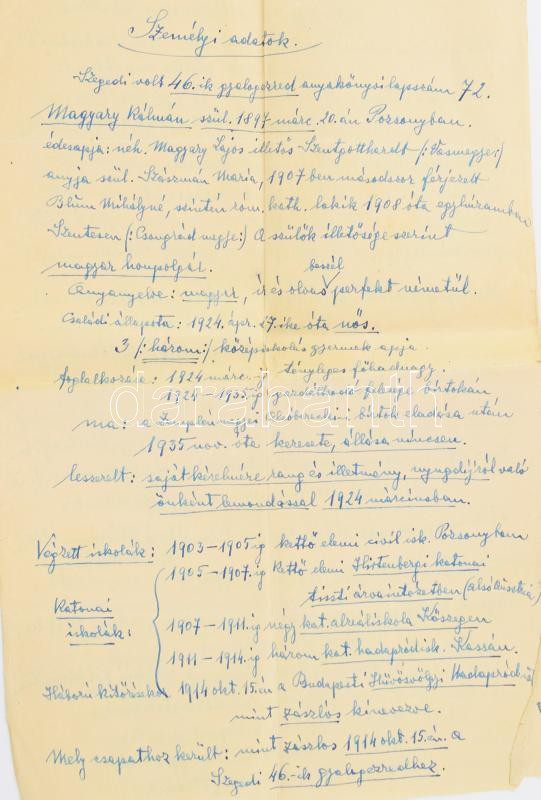 Személyi adatok.
Szegedi volt 46.ik gyalogezred anyakönyvi lapszám 72.
Magyary Kálmán szül. 1897 márc. 20.án Pozsonyban.
édesapja: néh. Magyary Lajos illetős Szentgotthardt (:Vasmegye:)
anyja szül. Szászmán Maria, 1907 ben másodszor férjezett
Blum Mihályné, szintén róm. kath. lakik 1908 óta egyhuzamban
Szentesen (:Csongrád megye:) A szülők illetősége szerint
magyar honpolgár.
beszél
Anyanyelve: magyar, ír és olvas perfekt németül.
Családi állapota: 1924. ápr. 27.ike óta nős.
3 /:három:/ középiskolás gyermek apja.
foglalkozása: 1924 márc.-ig tényleges főhadnagy.
1924-1935 ig gazdálkodó felesége birtokán
ma: a Zemplén megyei birtok eladása után
1935 nov. óta keresete, állása nincsen.
leszerelt: saját kérelmére rang és illetmény, nyugdíjról való
önként lemondással 1924 márciusban.
Végzett iskolák: 1903-1905 ig kettő elemi civil isk. Pozsonyban
1905-1907.ig kettő elemi Hirtenbergi katonai
tiszti árvaintézetben (alsó Ausztria)
Katonai
iskolák:
1907-1911.ig négy kat. alreáliskola Kőszegen
1911-1914.ig három kat. hadapródisk. Kassán.
Háború kitörésekor 1914 okt. 15.én a Budapesti Hűvösvölgyi Hadapród
mint zászlós kinevezve.
Mely csapathoz került: mint zászlós 1914 okt. 15.én a
Szegedi 46.-ik gyalogezredhez.
darabanth